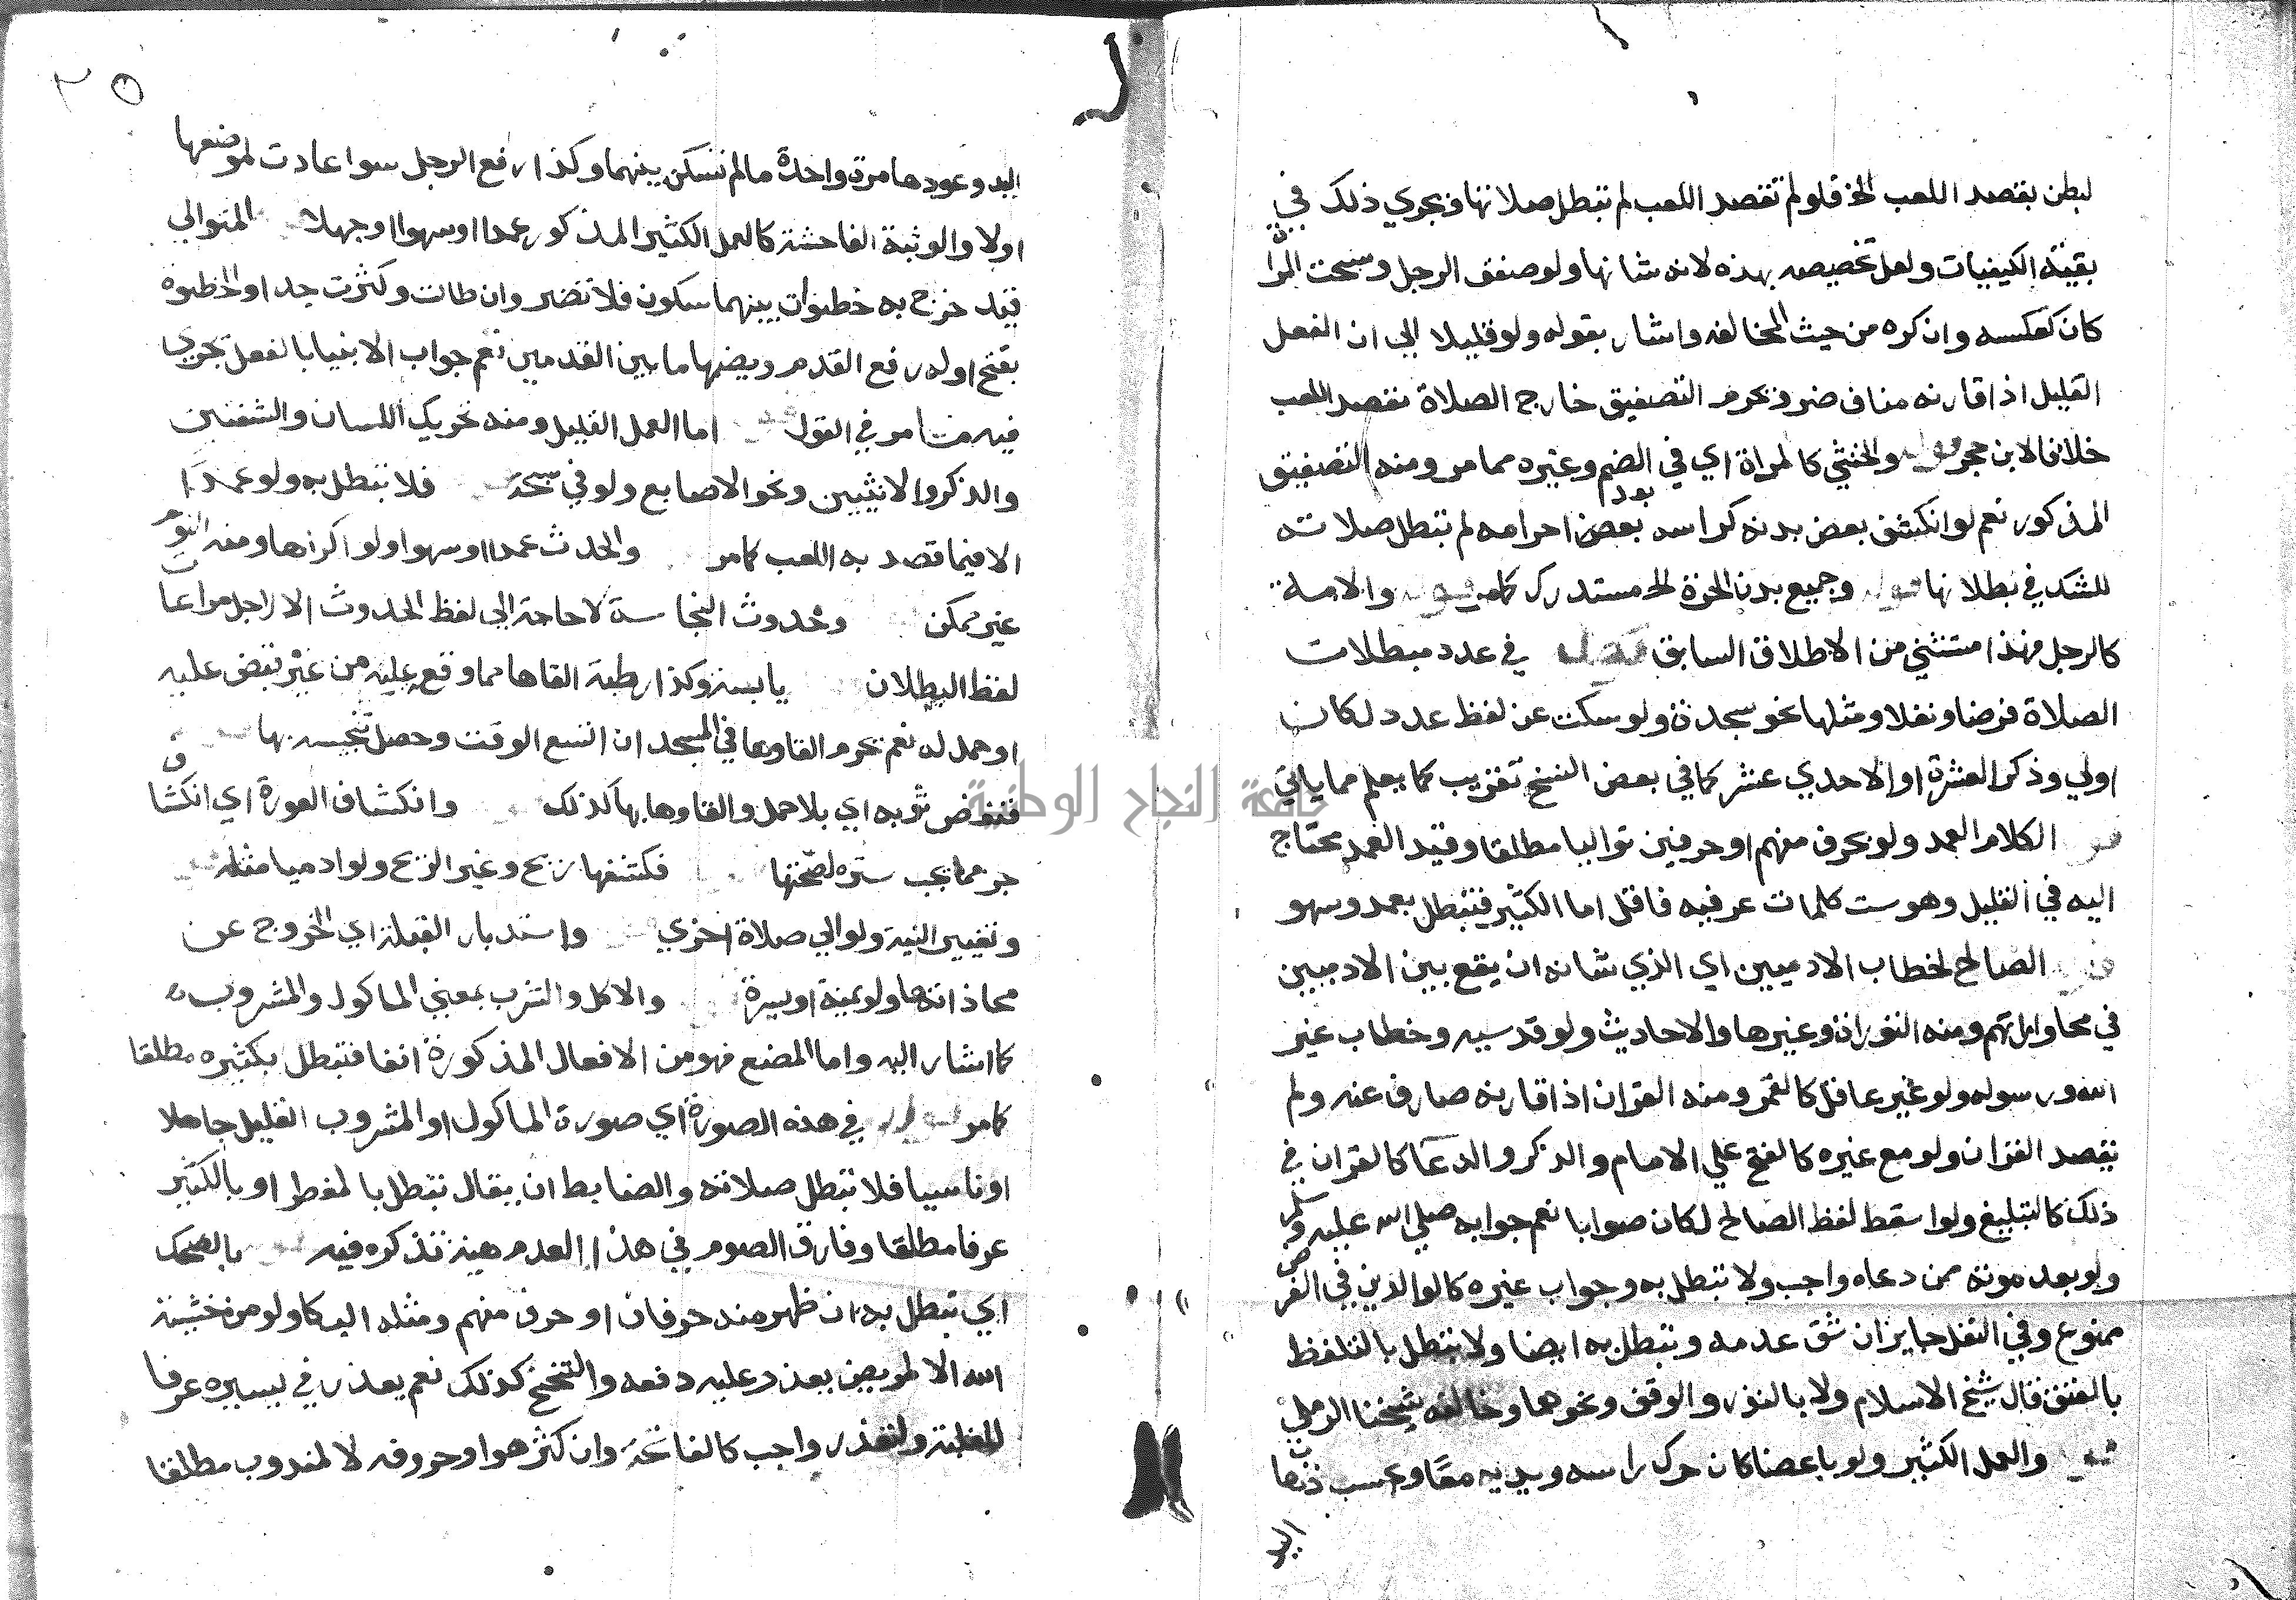 لبطن بقصد اللعب الخ فلو لم تقصد اللعب لم تبطل صلاتها ويجري ذلك في
بقية الكيفيات ولعل تخصيصه بهذه لانه شانها ولو صفق الرجل وسبحت المراة
كان كعكسه وان كره من حيث المخالفه واشار بقوله ولو قليلا الي ان الفعل
القليل اذا قارنه مناف ضر ويحرم التصفيق خارج الصلاة بقصد اللعب
خلافا لابن حجر قوله والخنثي كالمراة اي في الضم وغيره مما مر ومنه التصفيق
المذكور نعم لو انكشف بعض بدنه كراسه بعد احرامه لم تبطل صلاته
للشك في بطلانها قوله وجميع بدن الحرة الخ مستدرك كامر قوله والامة
كالرجل فهذا مستثني من الاطلاق السابق فصل في عدد مبطلات
الصلاة فرضا ونفلا ومثلها نحو سجدة ولو سكت عن لفظ عدد لكان
اولي وذكر العشرة او الاحدي عشر كما في بعض النسخ تقريب كما يعلم مما ياتي
قوله الكلام العمد ولو بحرف مفهم او حرفين تواليا مطلقا وقيد العمد محتاج
اليه في القليل وهو ست كلمات عرفيه فاقل اما الكثير فتبطل بعمد وسهو
قوله الصالح لخطاب الادميين اي الذي شانه ان يقع بين الادميين
في محاوراتهم ومنه التوراة وغيرها والاحاديث ولو قدسيه وخطاب غير
الله ورسوله ولو غير عاقل كالقمر ومنه القران اذا قارنه صارف عنه ولم
يقصد القران ولو مع غيره كالفتح علي الامام والذكر والدعا كالقران في
ذلك كالتبليغ ولو اسقط لفظ الصالح لكان صوابا نعم جوابه صلي الله عليه وسلم
ولو بعد موته ممن دعاه واجب ولا تبطل به وجواب غيره كالوالدين في الفرض
ممنوع وفي النفل جايز ان شق عدمه وتبطل به ايضا ولا تبطل بالتلفظ
بالعتق قال شيخ الاسلام ولا بالنذر والوقف ونحوهما وخالفه شيخنا الرملي
قوله والعمل الكثير ولو باعضا كان حرك راسه ويديه معا ويحسب ذهاب
اليد
٣٥
اليد وعودها مرة واحدة ما لم تسكن بينهما وكذا رفع الرجل سوا عادت لموضعها
اولا والوثبة الفاحشة كالعمل الكثير المذكور عمدا او سهوا او جهلا المتوالي
قيد خرج به خطوات بينهما سكون فلا تضر وان طالت وكثرت جدا والخطوه
بفتح اوله رفع القدم وبضمها ما بين القدمين نعم جواب الانبيا بالفعل يجري
فيه ما مر في القول اما العمل القليل ومنه تحريك اللسان والشفتين
والذكر والانثيين ونحو الاصابع ولو في سبحة فلا تبطل به ولو عمدا
الا فيما قصد به اللعب كما مر والحدث عمدا او سهوا ولو اكراها ومنه النوم
غير ممكن وحدوث النجاسة لا حاجة الي لفظ الحدوث الا لاجل مراعات
لفظ البطلان يابسة وكذا رطبة القاها مما وقع عليه من غير نقبض عليه
او حمل له نعم يحرم القاوها في المسجد ان اتسع الوقت وحصل تنجيسه بها
فنفض ثوبه اي بلا حمل والقاوها بها كذلك وانكشاف العورة اي انكشاف
جزء مما يجب ستره لصحتها فكشفها ريح وغير الريح ولو ادميا مثله
وتغيير النية ولو الي صلاة اخري واستدبار القبلة اي الخروج عن
محاذاتها ولو يمنة او يسرة والاكل والشرب بمعني الماكول والمشروب
كما اشار اليه واما المضغ فهو من الافعال المذكورة انفا فتبطل بكثيره مطلقا
كامر قوله في هذه الصورة اي صورة الماكول او المشروب القليل جاهلا
او ناسيا فلا تبطل صلاته والضابط ان يقال تبطل بالمفطر او بالكثير
عرفا مطلقا وفارق الصوم في هذا لعدم هيئة تذكره فيه بالضحك
اي تبطل به ان ظهر منه حرفان او حرف مفهم ومثله البكا ولو من خشية
الله الا لمريض بعذر عليه دفعه والتنحنح كذلك نعم يعذر في يسيره عرفا
للغلبة ولتعذر واجب كالفاتحة وان كثر هو او حروفه لا لمندوب مطلقا